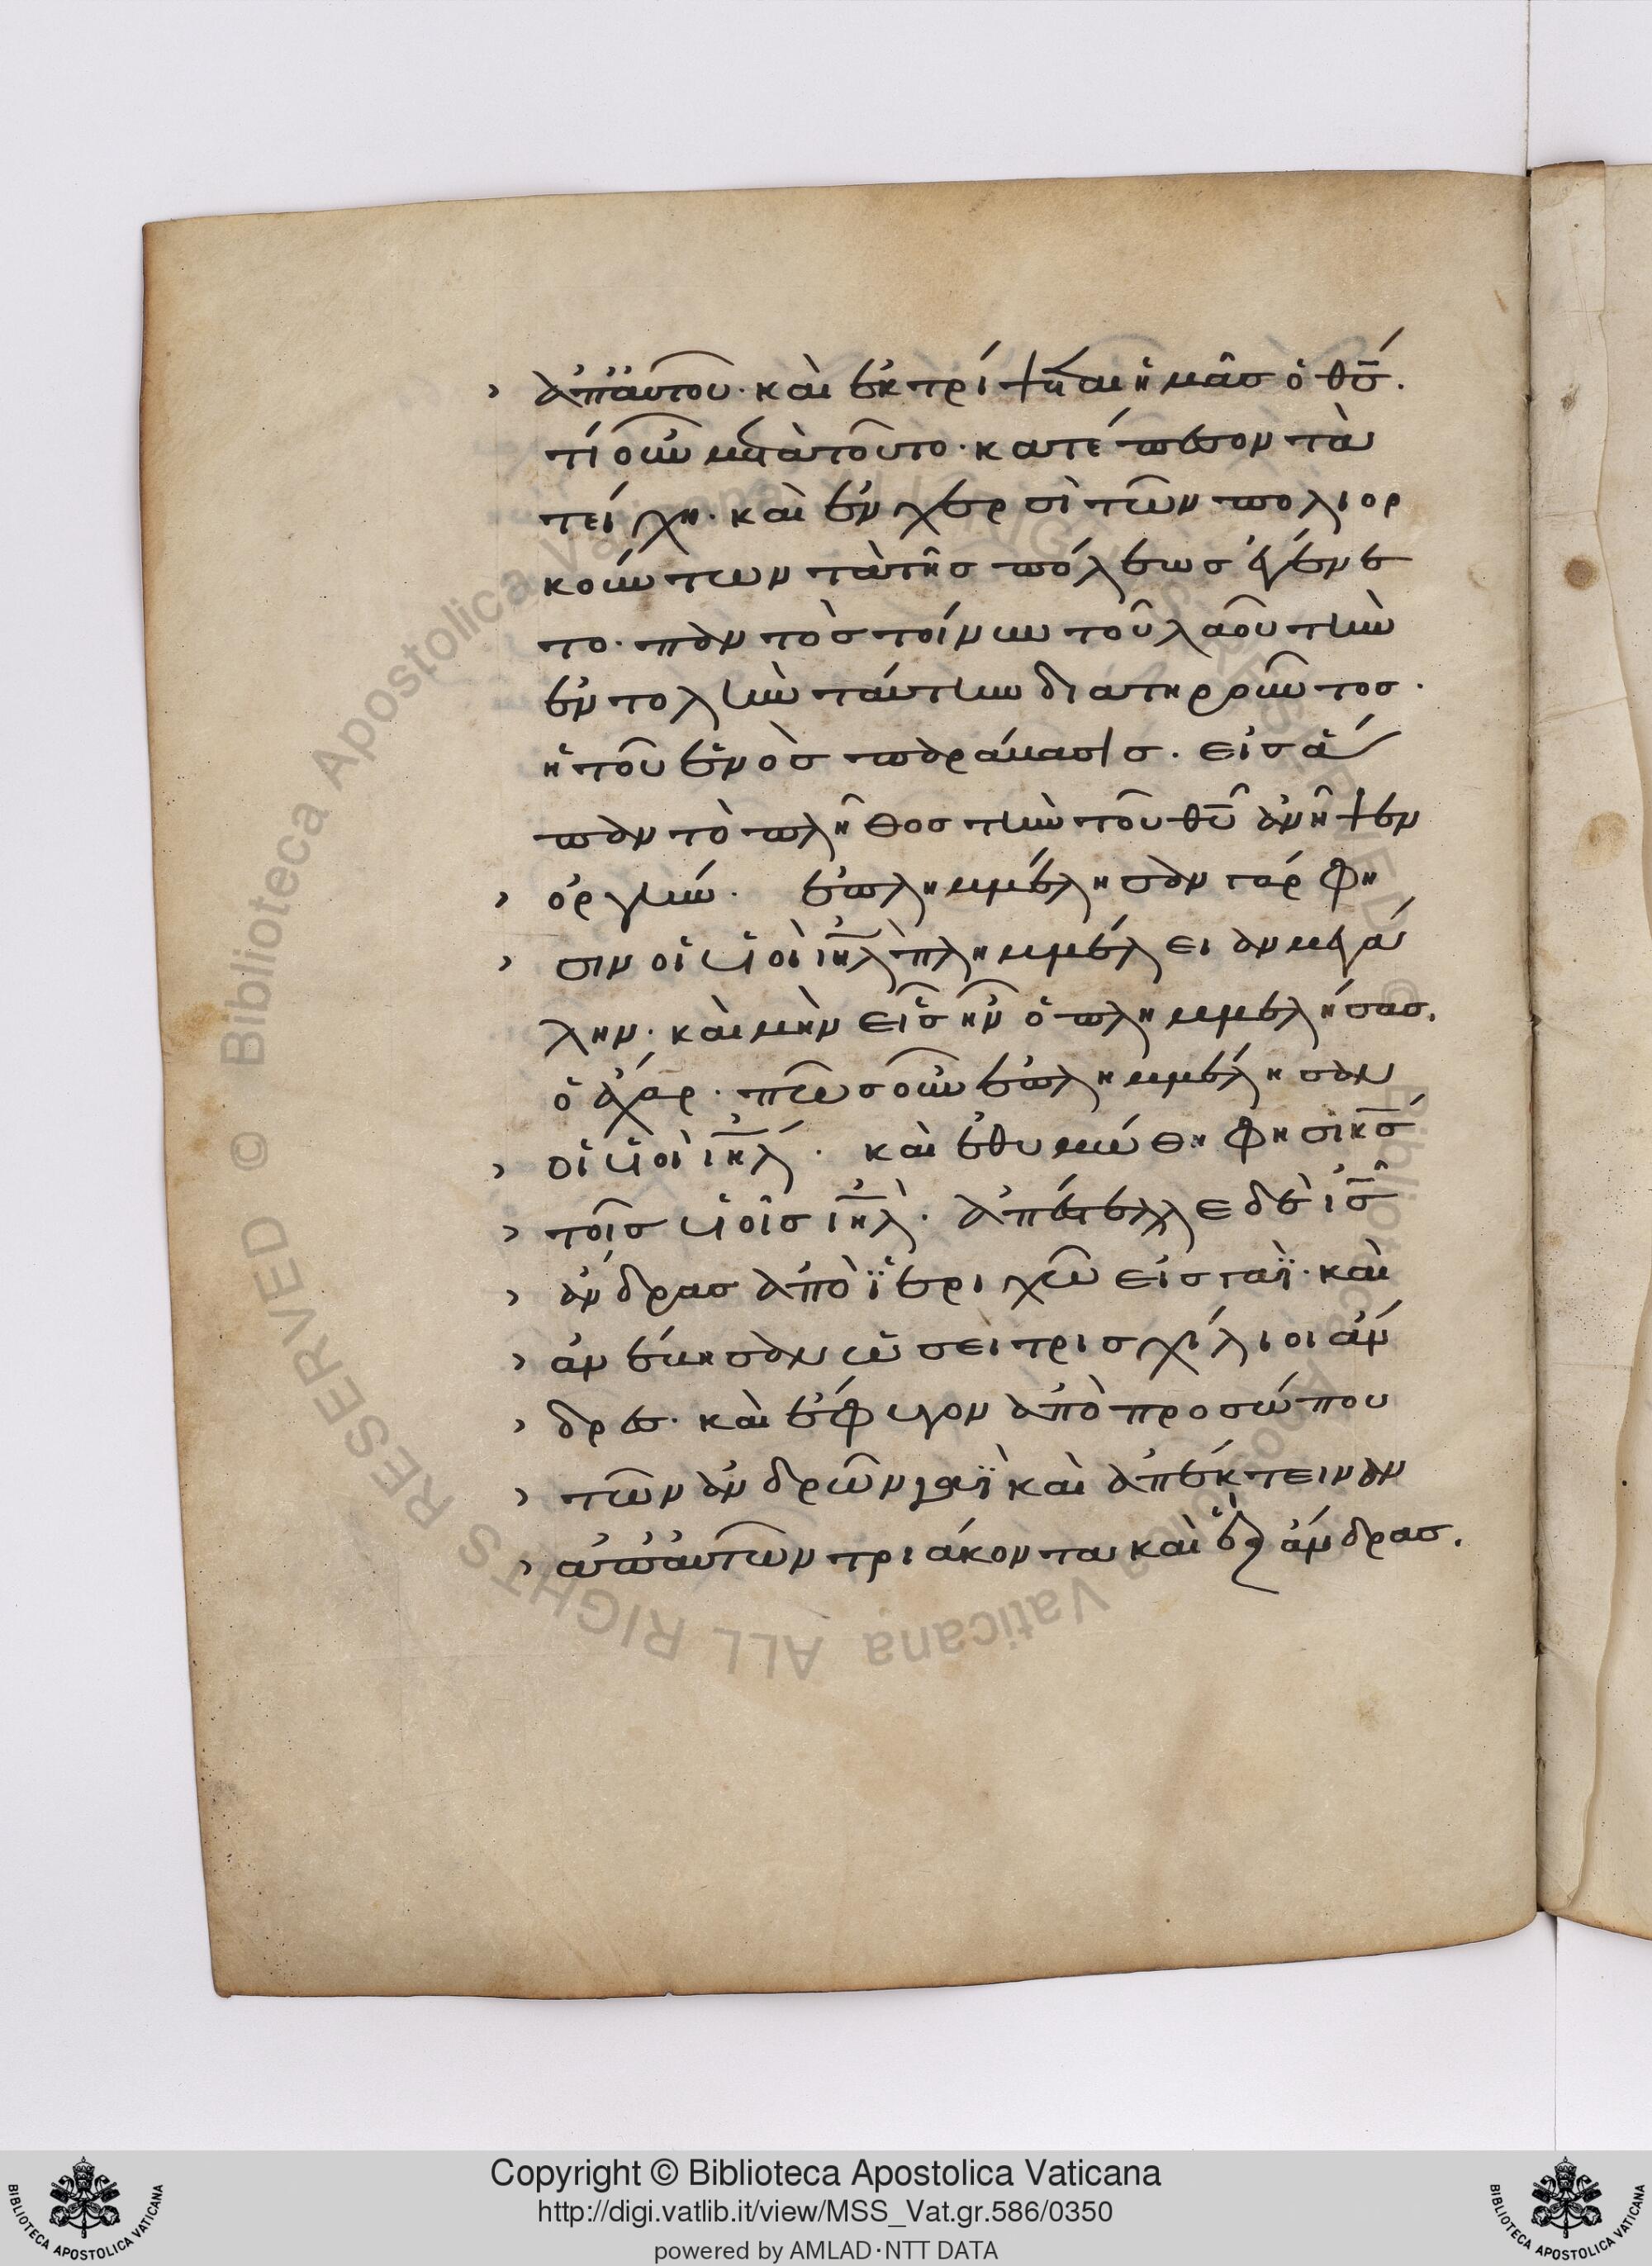 › ἀπ' αὐτοῦ· καὶ ἐκτρίψηται ἡμᾶς ὁ θς.
τί οὖν μετὰ τοῦτο· κατέπεσον τὰ
τείχη· καὶ ἐν χερσὶ τῶν πολιορ
κούντων τὰ τῆς πόλεως ἐγένε
το· παντὸς τοίνυν τοῦ λαοῦ τὴν
ἐντολὴν ταύτην διατηροῦντος.
ἡ τοῦ ἑνὸς παράβασις. εἰς ἅ
παν τὸ πλῆθος τὴν τοῦ θυ ἀνῆψεν
› ὀργήν. ἐπλημμέλησαν γάρ φη
› σιν οἱ υἱοὶ ιηλ πλημμέλειαν μεγά
λην· καὶ μὴν εἷς ἦν ὁ πλημμελήσας.
ὁ ἄχαρ· πῶς οὖν ἐπλημμέλησαν
› οἱ υἱοὶ ιηλ. καὶ ἐθυμώθη φησὶ κς
› τοῖς υἱοῖς ιηλ. ἀπέστειλε δὲ ις
› ἄνδρας ἀπὸ ἱεριχῶ εἰς γαΐ· καὶ
› ἀνέβησαν ὡσεὶ τρισχίλιοι ἄν
› δρες· καὶ ἔφυγον ἀπὸ προσώπου
› τῶν ἀνδρῶν γαΐ καὶ ἀπέκτειναν
› ἀπ' αὐτῶν τριάκοντα καὶ ἓξ ἄνδρας.
Copyright © Biblioteca Apostolica Vaticana
http://digi.vatlib.it/view/MSS_Vat.gr.586/0350
powered by AMLAD·NTT DATA
BIBLIOTECA APOSTOLICA VATICANA
BIBLIOTECA APOSTOLICA VATICANA
© Biblioteca Apostolica Vaticana ALL RIGHTS RESERVED
© Biblioteca Apostolica Vaticana ALL RIGHTS RESERVED